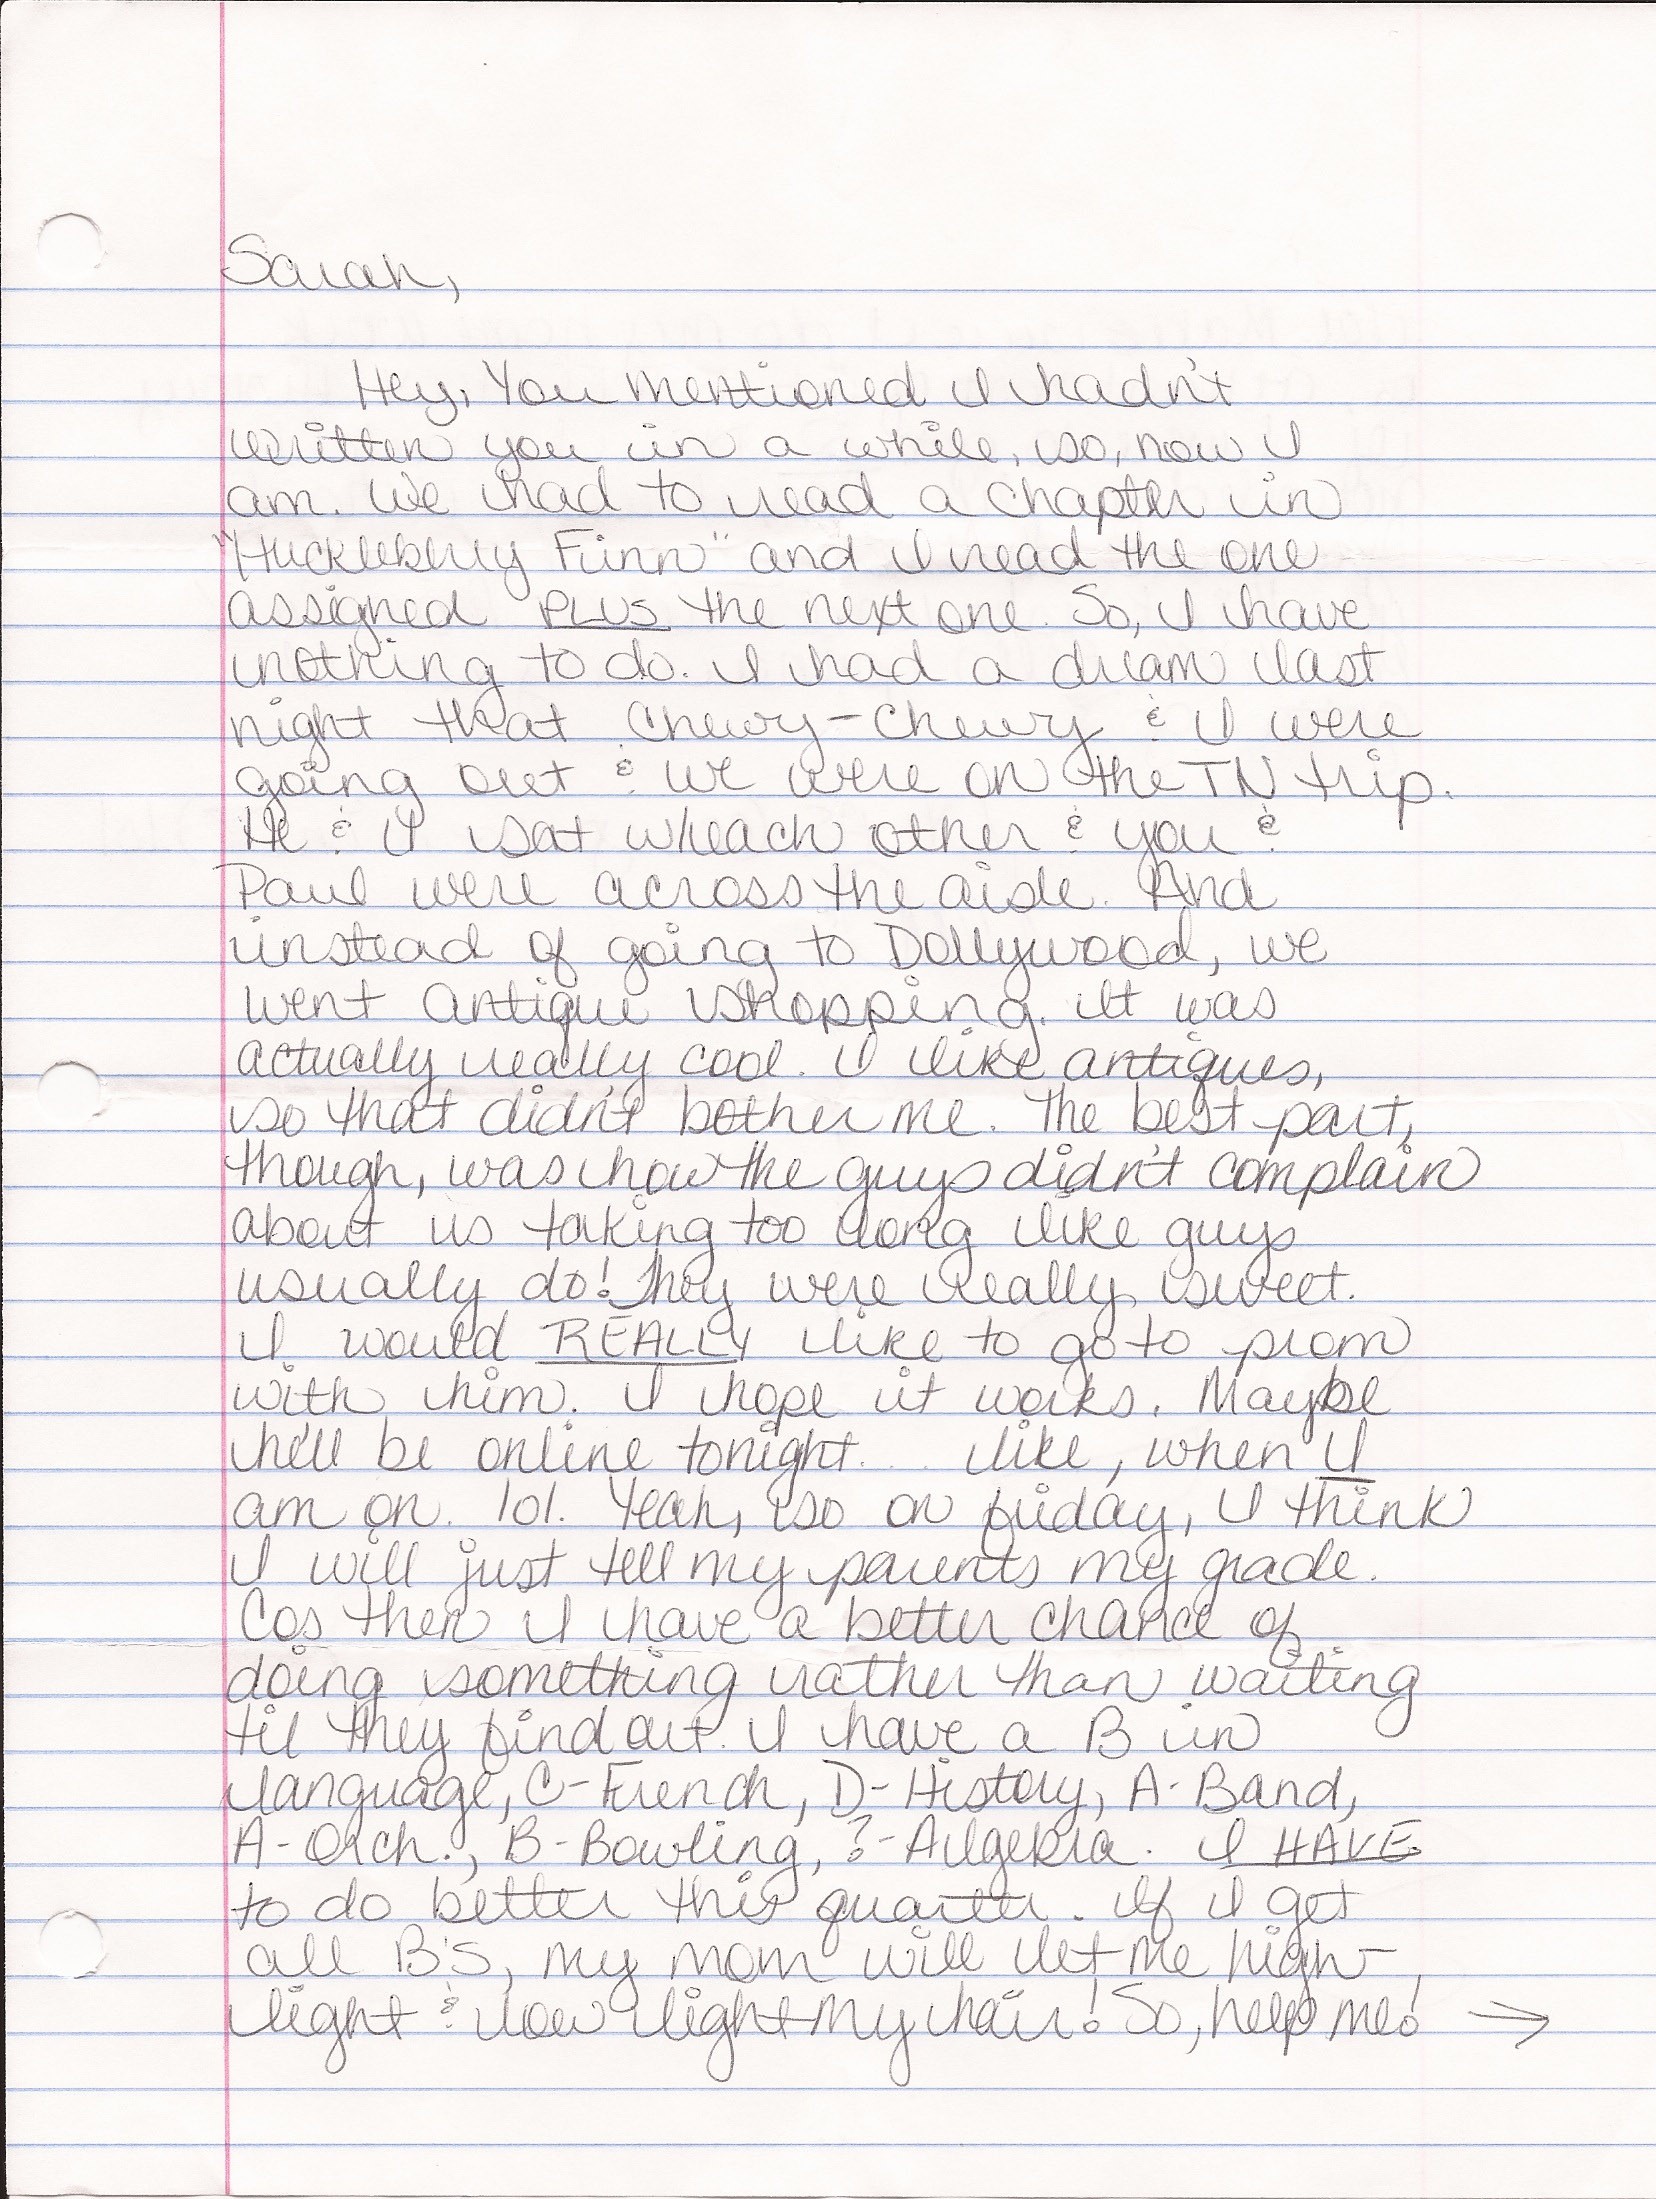 Sarah,
Hey, You mentioned I hadn't
written you in a while, so, now I
am. We had to read a chapter in
"Huckleberry Finn" and I read the one
assigned PLUS the next one. So, I have
nothing to do. I had a dream last
night that Chewy-Chewy & I were
going out & we were on the TN trip.
He & I sat w/each other & you &
Paul were across the aisle. And
instead of going to Dollywood, we
went antique shopping. It was
actually really cool. I like antiques,
so that didn't bother me. The best part,
though, was how the guys didn't complain
about us taking too long like guys
usually do! They were really sweet.
I would REALLY like to go to prom
with him. I hope it works. Maybe
he'll be online tonight... like, when I
am on. lol. Yeah, so on friday, I think
I will just tell my parents my grade.
Cos then I have a better chance of
doing something rather than waiting
til they find out. I have a B in
language, C-French, D-History, A-Band,
A-Orch., B-Bowling, ?-Algebra. I HAVE
to do better this quarter. If I get
all B'S, my mom will let me high-
light & low light my hair! So, help me! →